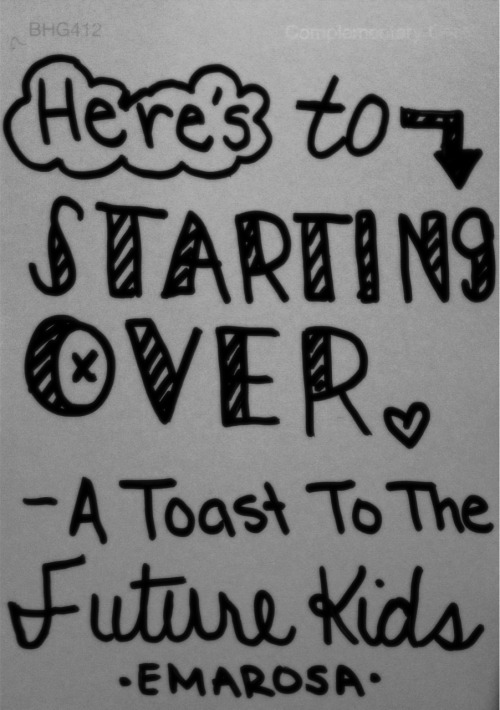 BHG412 Complementary
Here's to
STARTING
OVER
-A Toast To The
Future Kids
·EMAROSA·